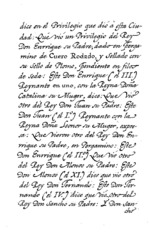 dice en el Privilegio que dió à esta Ciu-
dad: Que vió un Privilegio del Rey
Don Enrrique su Padre, dado en Perga-
mino de Cuero Rodado, y Sellado con
su Sello de Plomo, pendiente en filos
de seda: Este Don Enrrique (el III)
Reynante en uno, con la Reyna Doña
Catalina su Muger, dice, Que vió
otro del Rey Don Juan su Padre: Este
Don Juan (el I) Reynante con la
Reyna Doña Leonor su Muger, expre-
sa: Que vieron otro del Rey Don En-
rrique su Padre, en Pergamino: Este
Don Enrrique (el II) Que vió otro del
Rey Don Alonso su Padre: Este
Don Alonso (el XI) dice que vió otro
del Rey Don Fernando: Este Don Fer-
nando (el IV) dice que vió otro del
Rey Don Sancho su Padre: Y Don San-
cho